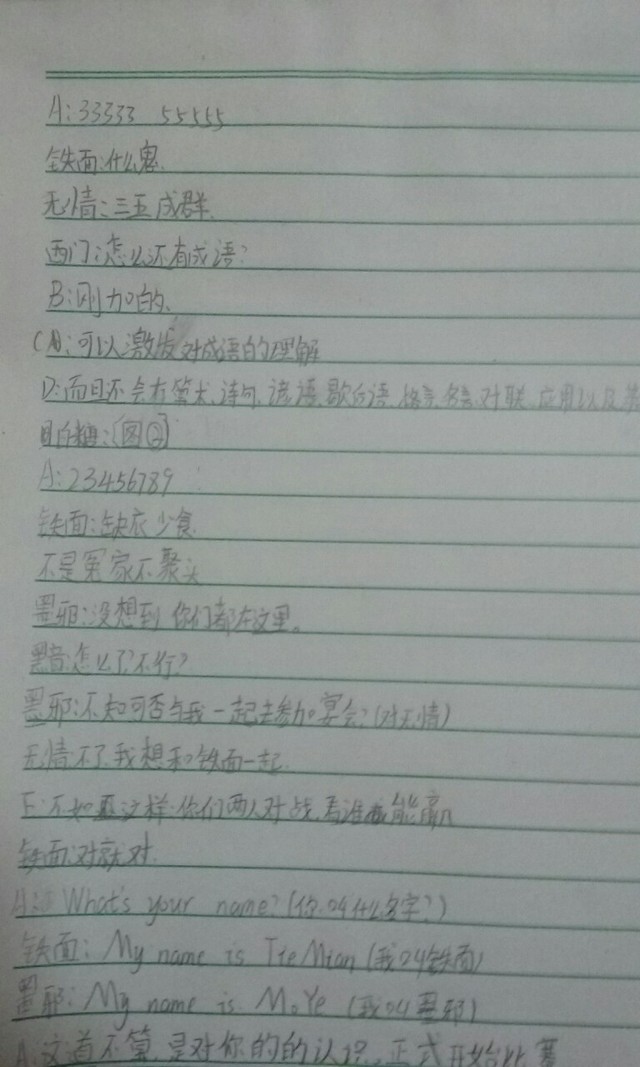 A:33333 55555
铁面:什么鬼.
无情:三五成群.
西门:怎么还有成语?
B:刚加的.
可以激发对成语的理解
D:而且还会有算术、诗句、谚语、歇后语、格言、名言、对联、应用以及
白糖:(图②)
A:23456789
铁面:缺衣少食.
不是冤家不聚头
墨邪:没想到你们都在这里。
墨音:怎么了?不行?
墨邪:不知可否与我一起去参加宴会?(对无情)
无情:不了,我想和铁面一起.
E:不如这样,你们两人对战,看谁能赢
铁面:对就对.
A: What's your name?(你叫什么名字?)
铁面: My name is TieMian(我叫铁面)
墨邪: My name is MoYe (我叫墨邪)
A:这道不算,是对你的的认识,正式开始比赛